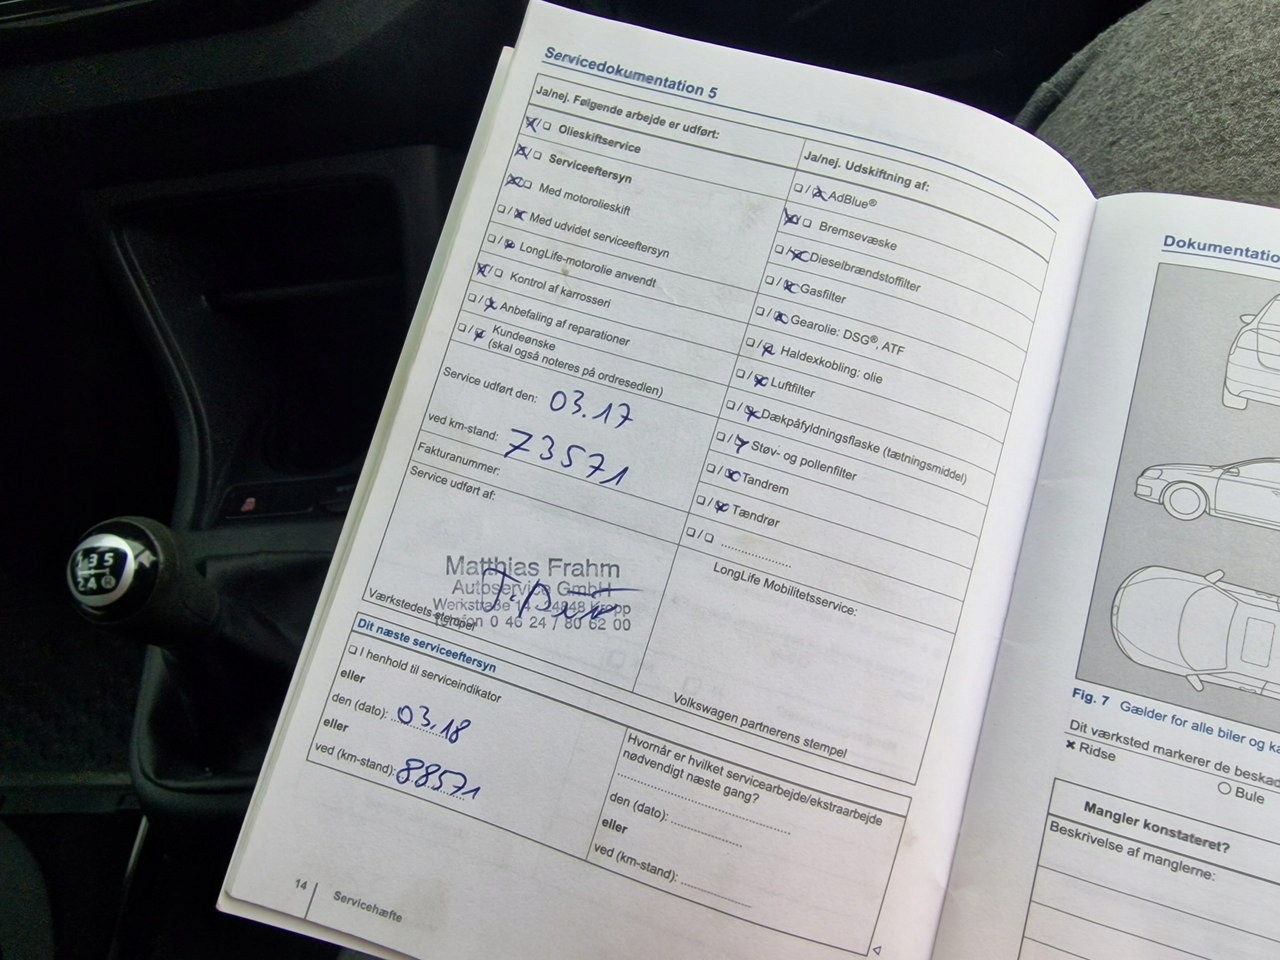 Servicedokumentation 5
Ja/nej. Følgende arbejde er udført:
☒/☐ Olieskiftservice
☒/☐ Serviceeftersyn
☒/☐ Med motorolieskift
☐/☒ Med udvidet serviceeftersyn
☐/☒ LongLife-motorolie anvendt
☒/☐ Kontrol af karrosseri
☐/☒ Anbefaling af reparationer
☐/☒ Kundeønske
(skal også noteres på ordresedlen)
Service udført den: 03.17
ved km-stand: 73571
Fakturanummer:
Service udført af:
Matthias Frahm
Autoservice GmbH
Werkstraße 14 · 24848 Kropp
Telefon 0 46 24 / 80 62 00
Værkstedets stempel
Ja/nej. Udskiftning af:
☐/☒ AdBlue®
☒/☐ Bremsevæske
☐/☒ Dieselbrændstoffilter
☐/☒ Gasfilter
☐/☒ Gearolie: DSG®, ATF
☐/☒ Haldexkobling: olie
☐/☒ Luftfilter
☐/☒ Dækpåfyldningsflaske (tætningsmiddel)
☐/☒ Støv- og pollenfilter
☐/☒ Tandrem
☐/☒ Tændrør
☐/☐ ....................
LongLife Mobilitetsservice:
Volkswagen partnerens stempel
Dit næste serviceeftersyn
☐ I henhold til serviceindikator
eller
den (dato): 03.18
eller
ved (km-stand): 88571
Hvornår er hvilket servicearbejde/ekstraarbejde
nødvendigt næste gang?
den (dato): ....................
eller
ved (km-stand): ....................
14
Servicehæfte
Dokumentatio
Fig. 7 Gælder for alle biler og ka
Dit værksted markerer de beskad
✖ Ridse
○ Bule
Mangler konstateret?
Beskrivelse af manglerne:
1 3 5
2 4 R